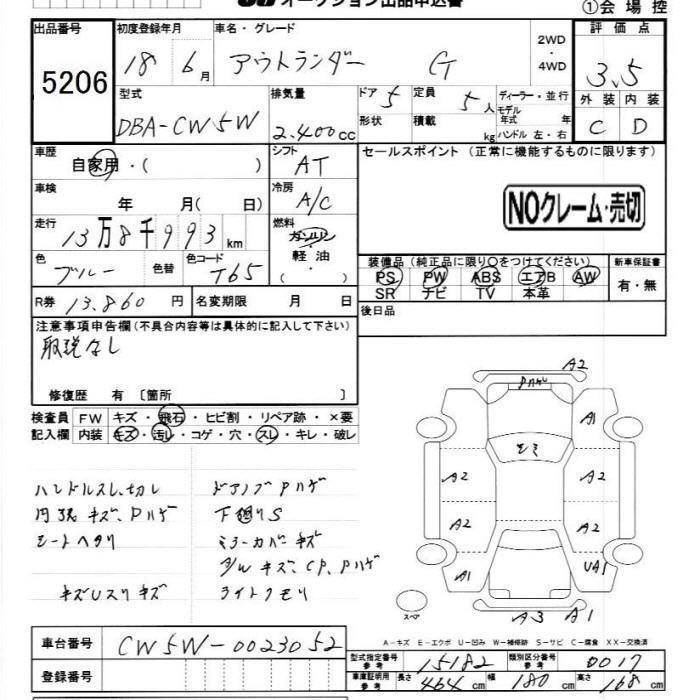 オークション出品申込書
①会場控
出品番号
5206
初度登録年月
18 6月
車名・グレード
アウトランダー G
2WD
・
4WD
評価点
3.5
外装 内装
C D
型式
DBA-CW5W
排気量
2.400cc
ドア 5
定員 5人
ディーラー・並行
モデル
年式 年
形状
積載 kg
ハンドル 左・右
車歴
自家用・( )
シフト
AT
セールスポイント (正常に機能するものに限ります)
車検
年 月( 日)
冷房
A/C
NOクレーム・売切
走行
13万8千993km
燃料
ガソリン
軽油
( ・ )
色
ブルー
色替
色コード
T65
装備品(純正品に限り〇をつけてください)
PS PW ABS エアB AW
SR ナビ TV 本革
新車保証書
有・無
R券 13.860円
名変期限 月 日
後日品
注意事項申告欄(不具合内容等は具体的に記入して下さい)
取説なし
修復歴 有〔箇所 〕
検査員
記入欄
FW キズ・飛石・ヒビ割・リペア跡・×要
内装 キズ・汚レ・コゲ・穴・スレ・キレ・破レ
ハンドルスレ、切レ ドアノブPハゲ
内張キズ、Pハゲ 下廻りS
シートヘタリ ミラーカバーキズ
A/Wキズ、CP、Pハゲ
キズUスリキズ ライトクモリ
A2
Pハゲ
A1
ヒミ
A2 A2
A2 A2
A1 UA1
スペア
A3 A1
A-キズ E-エクボ U-凹み W-補修跡 S-サビ C-腐食 XX-交換済
車台番号 CW5W-0023052
登録番号
型式指定番号
参考
15182
類別区分番号
参考
0017
車庫証明用
参考
長さ 464cm 幅 180cm 高さ 168cm